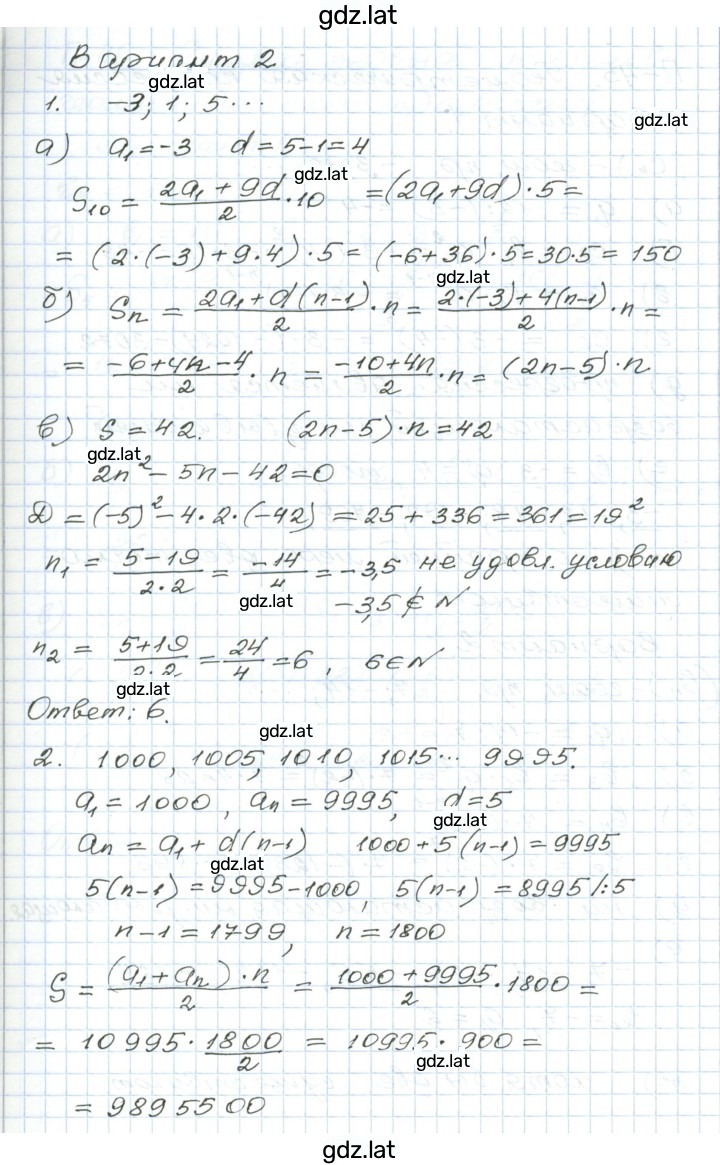 gdz.lat
Вариант 2
gdz.lat
1. -3; 1; 5 ...
gdz.lat
а) a₁ = -3 d = 5-1 = 4
gdz.lat
S₁₀ = (2a₁ + 9d)/2 · 10 = (2a₁ + 9d) · 5 =
= (2·(-3) + 9·4) · 5 = (-6+36) · 5 = 30·5 = 150
gdz.lat
б) Sₙ = (2a₁ + d(n-1))/2 · n = (2·(-3) + 4(n-1))/2 · n =
= (-6+4n-4)/2 · n = (-10+4n)/2 · n = (2n-5) · n
в) S = 42. (2n-5) · n = 42
gdz.lat
2n² - 5n - 42 = 0
D = (-5)² - 4·2·(-42) = 25 + 336 = 361 = 19²
n₁ = (5-19)/(2·2) = -14/4 = -3,5 не удовл. условию
gdz.lat
-3,5 ∉ N
n₂ = (5+19)/(2·2) = 24/4 = 6, 6 ∈ N
gdz.lat
Ответ: 6.
gdz.lat
2. 1000, 1005, 1010, 1015 ... 9995.
a₁ = 1000, aₙ = 9995, d = 5
gdz.lat
aₙ = a₁ + d(n-1) 1000 + 5(n-1) = 9995
gdz.lat
5(n-1) = 9995-1000, 5(n-1) = 8995 /:5
n-1 = 1799, n = 1800
S = (a₁ + aₙ) · n/2 = (1000 + 9995)/2 · 1800 =
= 10995 · 1800/2 = 10995 · 900 =
gdz.lat
= 9895500
gdz.lat